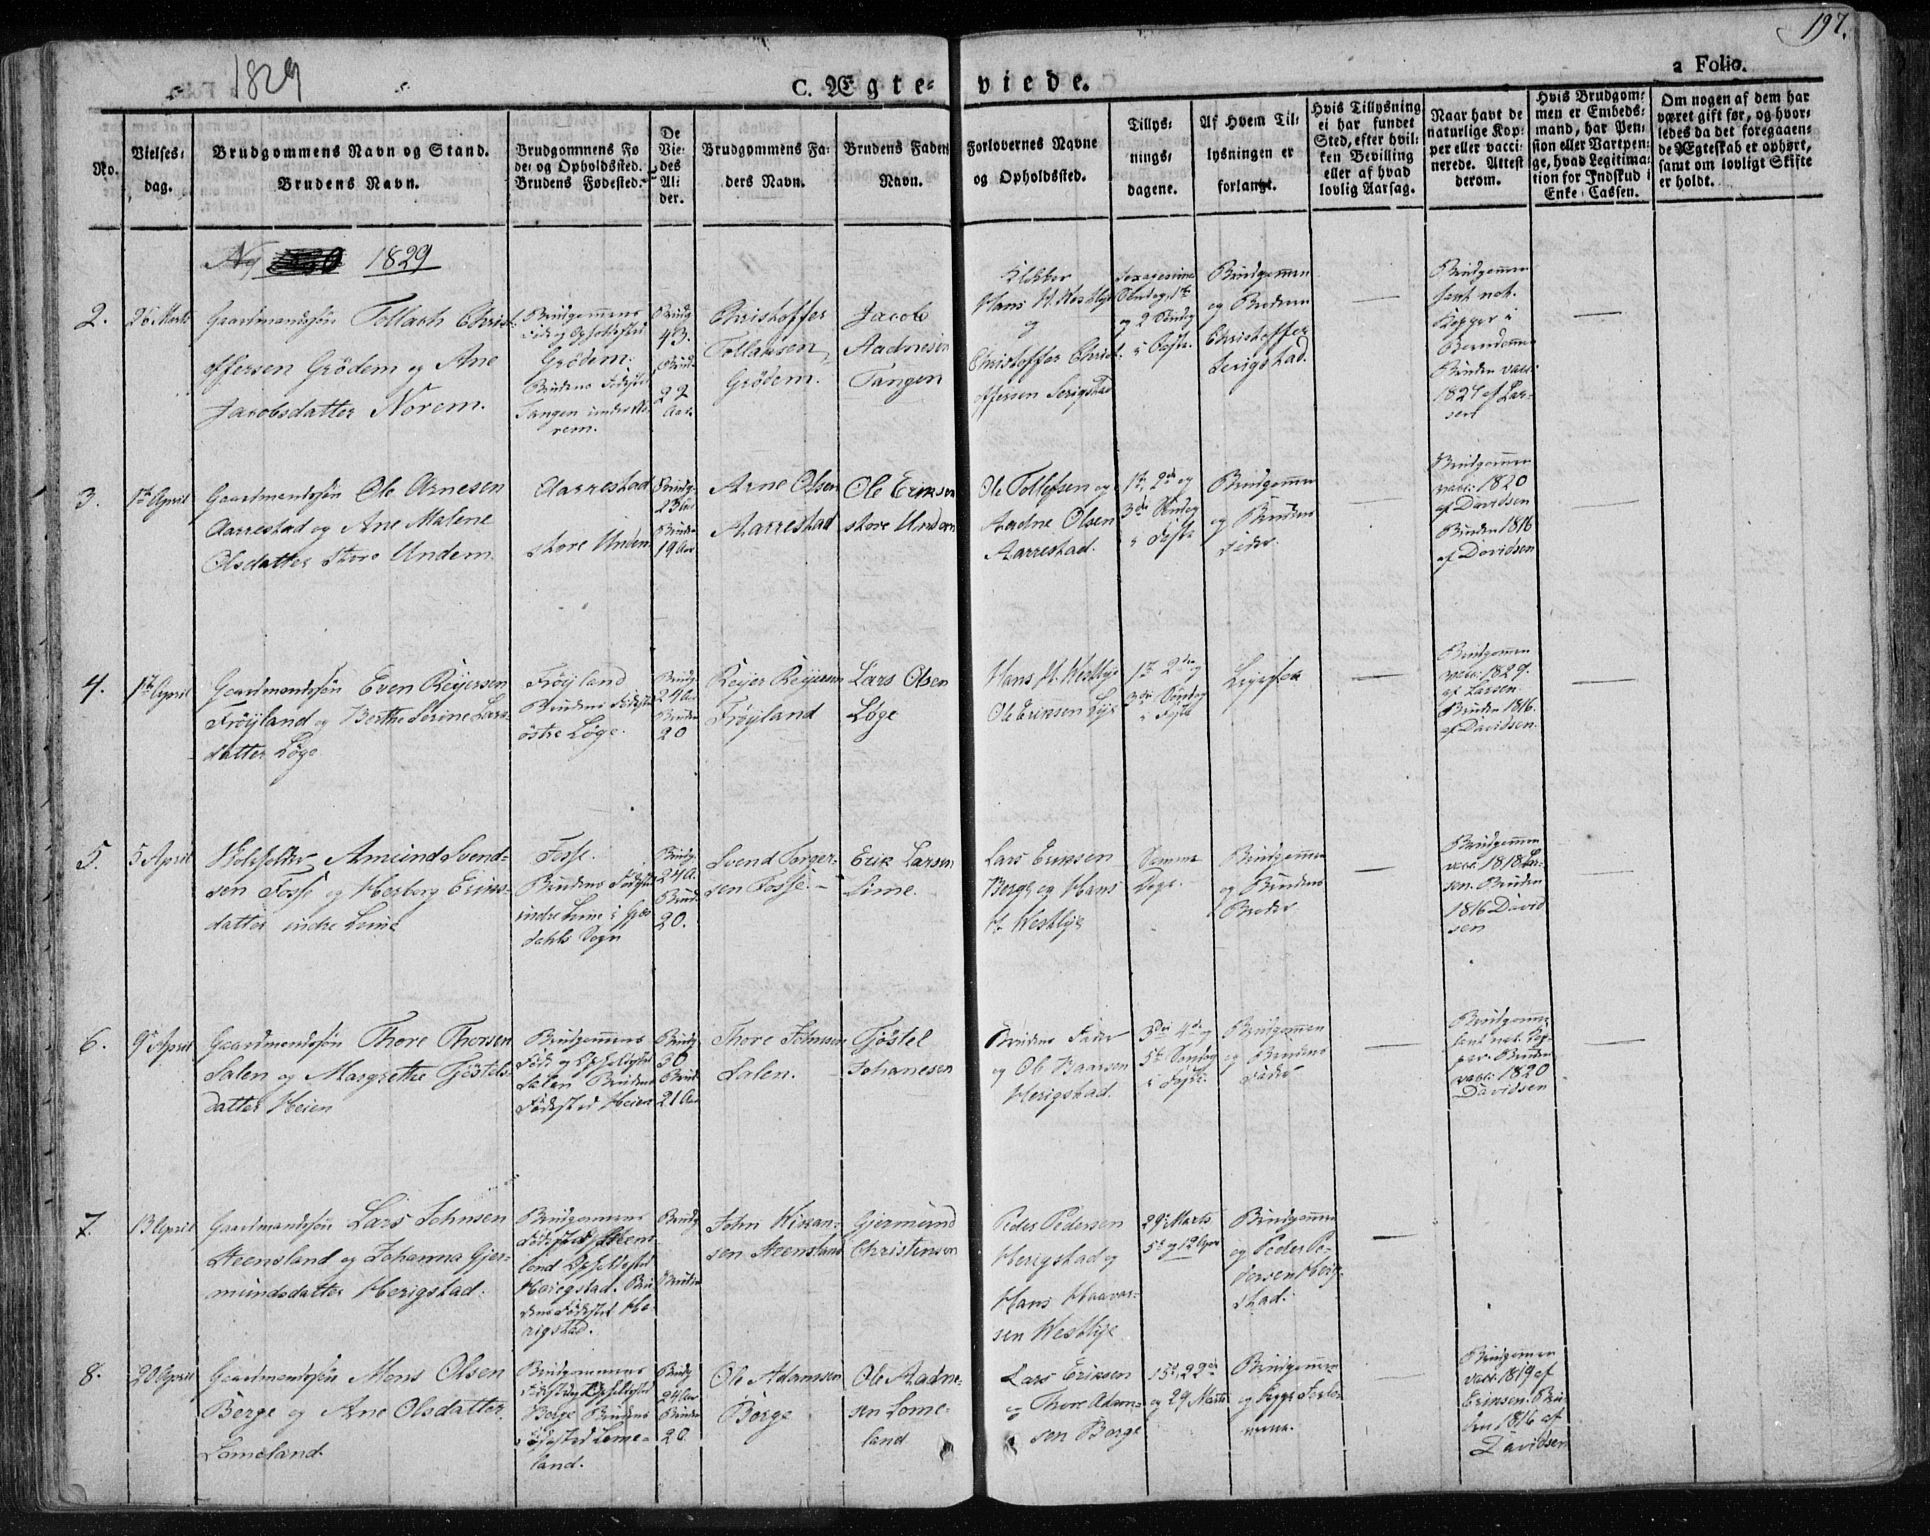 197.
1829
C. Ægte-viede.
a Folio.
No.
Vielses-
dag.
Brudgommens Navn og Stand.
Brudens Navn.
Brudgommens Fø
de- og Opholdssted.
Brudens Fødested.
De
Vie-
des
Al-
der.
Brudgommens Fa-
ders Navn.
Brudens Faders
Navn.
Forlovernes Navne
og Opholdssted.
Tillys-
nings-
dagene.
Af Hvem Til-
lysningen er
forlangt.
Hvis Tillysning
ei har fundet
Sted, efter hvil-
ken Bevilling
eller af hvad
lovlig Aarsag.
Naar havt de
naturlige Kop-
per eller vacci-
nerede. Attest
derom.
Hvis Brudgom-
men er Embeds-
mand, har Pen-
sion eller Vartpen-
ge, hvad Legitima-
tion for Indskud i
Enke-Cassen.
Om nogen af dem har
været gift før, og hvor-
ledes da det foregaaen-
de Ægteskab er ophørt,
samt om lovligt Skifte
er holdt.
1829
2.
26 Marts
Gaardmandssøn Tollach Christ-
offersen Grödem og Ane
Jacobsdatter Norem.
Brudgommens
Føde og Opholdssted
Grödem.
Brudens Fødested
Tangen under No-
rem.
Brudg
43.
Brud
22
Aar
Christoffer
Tollaksen
Grödem.
Jacob
Aadnesen
Tangen
Klokker
Hans H. Westlye
og
Christoffer Christ-
offersen Serigstad
Sexagesima
Søndag, 1ste
og 2 Søndag
i Faste.
Brudgommen
og Brudens
Christoffer
Serigstad.
Brudgommen
havt nat.
Kopper i
Barndommen
Bruden vacc:
1827 af Lar-
sen
3.
1ste April
Gaardmandssøn Ole Arnesen
Aarrestad og Ane Malene
Olsdatter store Undem.
Aarrestad
store Undem
Brudg.
23 Aar
Bruden
19 Aar
Arne Olsen
Aarrestad
Ole Eriksen
store Undem
Ole Tollefsen og
Aadne Olsen
Aarrestad.
1ste, 2de og
3die Søndag
i Faste
Brudgommen
og Brudens
Fader.
Brudgommen
vacc: 1820
af Davidsen
Bruden 1816
af Davidsen
4.
1ste April
Gaardmandssøn Even Reijersen
Fröijland og Berthe Serine Lars-
datter Löge
Fröijland
Brudens Fødested
östre Löge.
Brudg
24 Aar
Bruden
20
Reijer Reijersen
Fröijland
Lars Olsen
Löge
Hans H. Westlye
Ole Eriksen Lye
1ste 2den og
3die Søndag
i Faste
Brudgommen
vacc: 1829.
af Larsen
Bruden 1816.
af Davidsen.
5.
5 April
Amund Svend-
sen Fosse og Herborg Eriks-
datter indre Lime
Fosse.
Brudens Fødested
indre Lime i Gjes-
dahls Sogn
Brudg.
24 A.
Brud
20.
Svend Torger-
sen Fosse.
Erik Larsen
Lime.
Lars Eriksen
Berge og Hans
H. Westlye
Samme
Dage.
Brudgommen
og Brudens
Broder
Brudgommen
vacc: 1818 Lar-
sen. Bruden
1816 David
sen
6.
9de April
Gaardmandssøn Thore Thorsen
Salen og Margrethe Tjöstels-
datter Heien
Brudgommens
Føde og Opholdssted
Salen Brudens
Fødested Heien
Brudg
30
Brud
21 Aar
Thore Johnsen
Salen.
Tjöstel
Johanesen
Brudens Fader
og Ole Hansen
Herigstad.
3die 4de og
5te Søndag
i Faste.
Brudgommen
og Brudens
Fader
Brudgommen
havt nat. Kop-
per. Bruden
vacc: 1820
Davidsen
7.
13 April
Gaardmandssøn Lars Johnsen
Steensland og Johanna Gjer-
mundsdatter Herigstad.
Brudgommens
Fødested Steens-
land Opholdssted
Herigstad. Bru-
dens Fødested He-
rigstad.
Brudg
Bruden
John Kikan-
sen Steensland
Gjermund
Christensen
Peder Pedersen
Herigstad og
Hans Haavar-
sen Westlye
29 Marts
5te og 12 April
Brudgommen
og Peder Pe-
dersen Herig-
stad.
8.
20 April
Gaardmandssøn Mons Olsen
Berge og Ane Olsdatter
Lomeland.
Brudgommens
Fødested og Opholdssted
Berge Brudens
Fødested Lome-
land.
Brudg
24 Aar
Bruden
20
Ole Adamsen
Berge
Ole Aadne-
sen Lome-
land
Lars Eriksen
og Thore Adam-
sen Berge
15de, 22de
og 29 Marts
Brudgommen
og begge Forlo-
verne.
Brudgommen
vacc: 1819 af
Eriksen. Bru-
den 1816 af
Davidsen